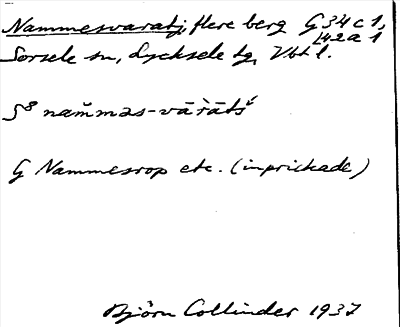 Nammesvaratj, flere berg G 34 c 1,
42 a 1
Sorsele sn, Lycksele tg, Vbt l.
S⁸ nam̆məs-vā̀rāts
G Nammesrop etc. (inprickade)
Björn Collinder 1937